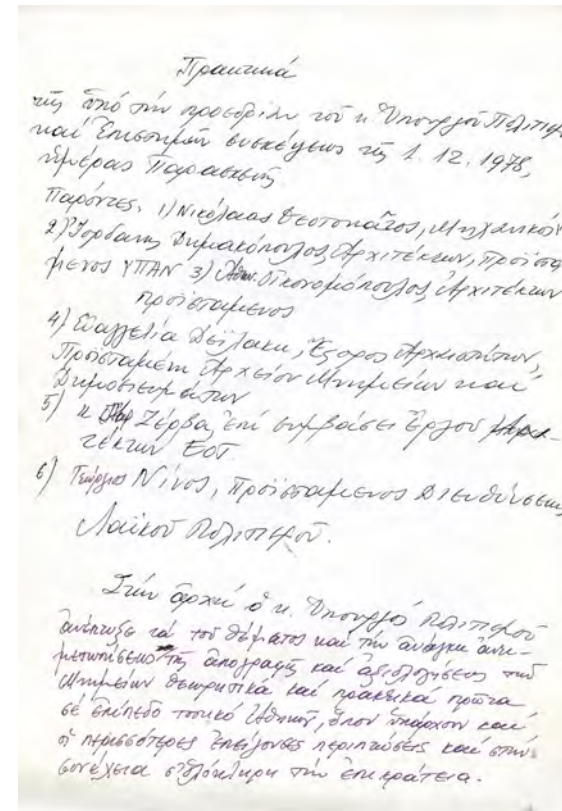 Πρακτικά
τῆς ὑπό τήν προεδρίαν τοῦ κ. Ὑπουργοῦ Πολιτισμ
καί Ἐπιστημῶν συσκέψεως τῆς 1.12.1978,
ἡμέρας Παρασκευῆς
Παρόντες. 1) Νικόλαος Θεοτοκᾶτος, Μηχανικός
2) Ἰορδάνης Δημακόπουλος Ἀρχιτέκτων, Προϊστά
μενος ΥΠΑΝ 3) Ἀθαν. Οἰκονομόπουλος Ἀρχιτέκτων
προϊστάμενος
4) Εὐαγγελία Δεϊλάκη, Ἔφορος Ἀρχαιοτήτων,
Προϊσταμένη Ἀρχείου Μνημείων καί
Δημοσιευμάτων
5) κ Ζέρβα, ἐπί συμβάσει Ἔργου
τέκτων ΕΟΤ
6) Γεώργιος Νίνος, Προϊστάμενος Διευθύνσεως
Λαϊκοῦ Πολιτισμοῦ.
Στήν ἀρχή ὁ κ. Ὑπουργός Πολιτισμοῦ
ἀνέπτυξε τά τοῦ θέματος καί τήν ἀνάγκη ἀντι-
μετωπίσεως τῆς ἀπογραφῆς καί ἀξιολογήσεως τῶν
Μνημείων θεωρητικά καί πρακτικά πρῶτα
σέ ἐπίπεδο τοπικό Ἀθηνῶν, ὅπου ὑπάρχουν καί
οἱ περισσότερες ἐπείγουσες περιπτώσεις καί στήν
συνέχεια σ' ὁλόκληρη τήν ἐπικράτεια.